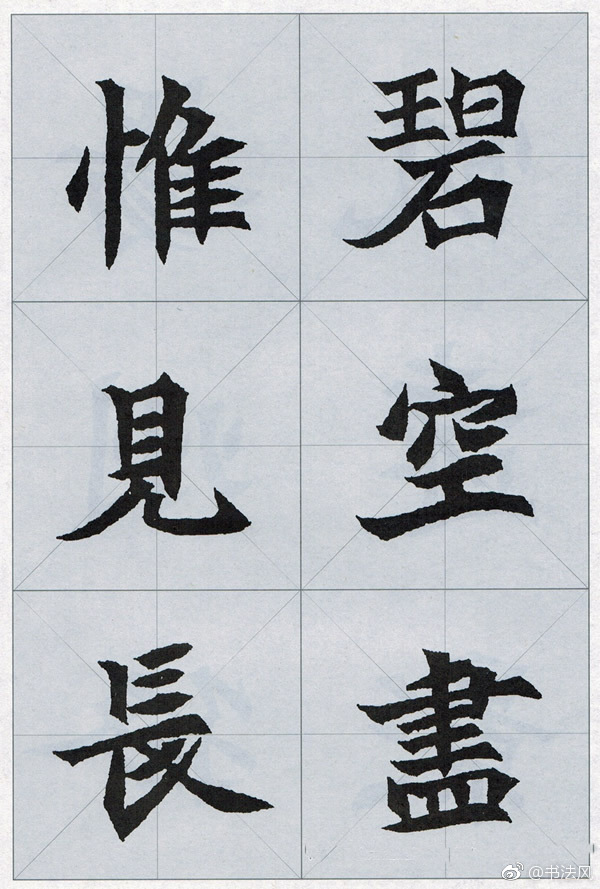 碧空盡
惟見長
@书法网